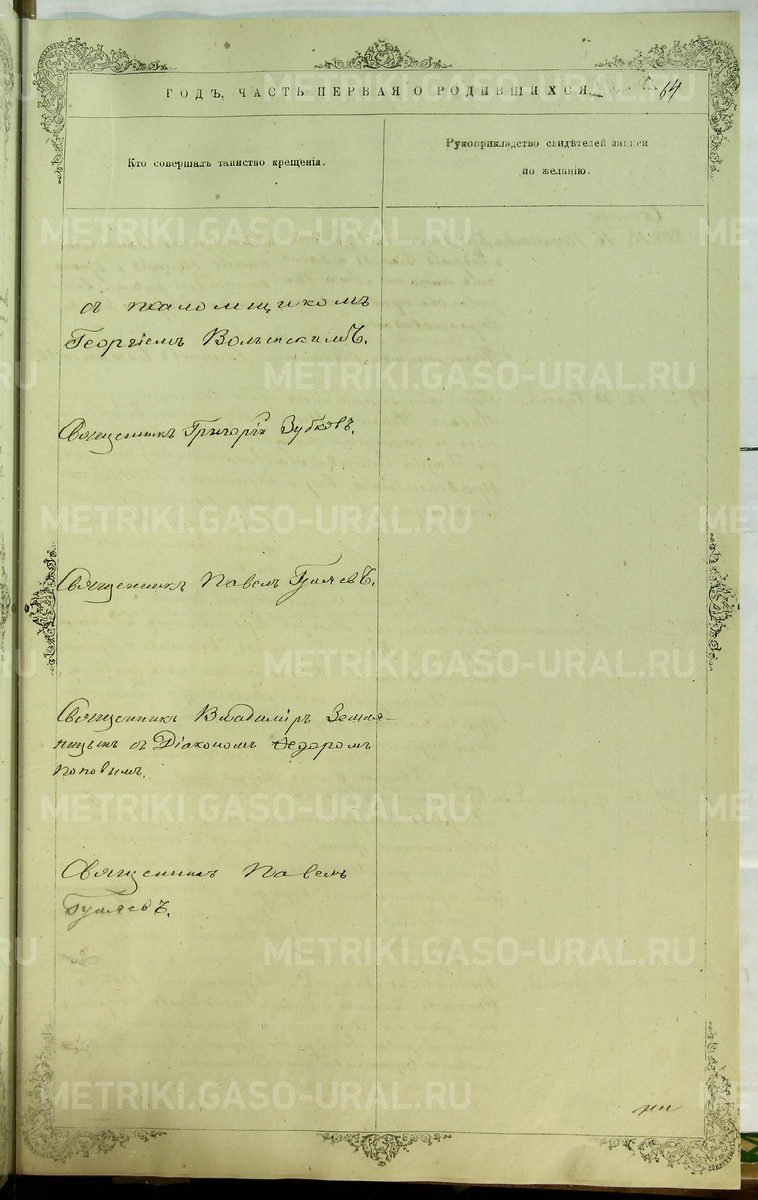 ГОДЪ, ЧАСТЬ ПЕРВАЯ О РОДИВШИХСЯ
64
Кто совершалъ таинство крещенія.
Рукоприкладство свидѣтелей записи
по желанію.
съ псаломщикомъ
Георгіемъ Волынскимъ.
Священникъ Григорій Зубковъ.
Священникъ Павелъ Гуляевъ.
Священникъ Владиміръ Земля-
ницынъ съ Діакономъ Ѳедоромъ
Поповымъ.
Священникъ Павелъ
Гуляевъ.
METRIKI.GASO-URAL.RU